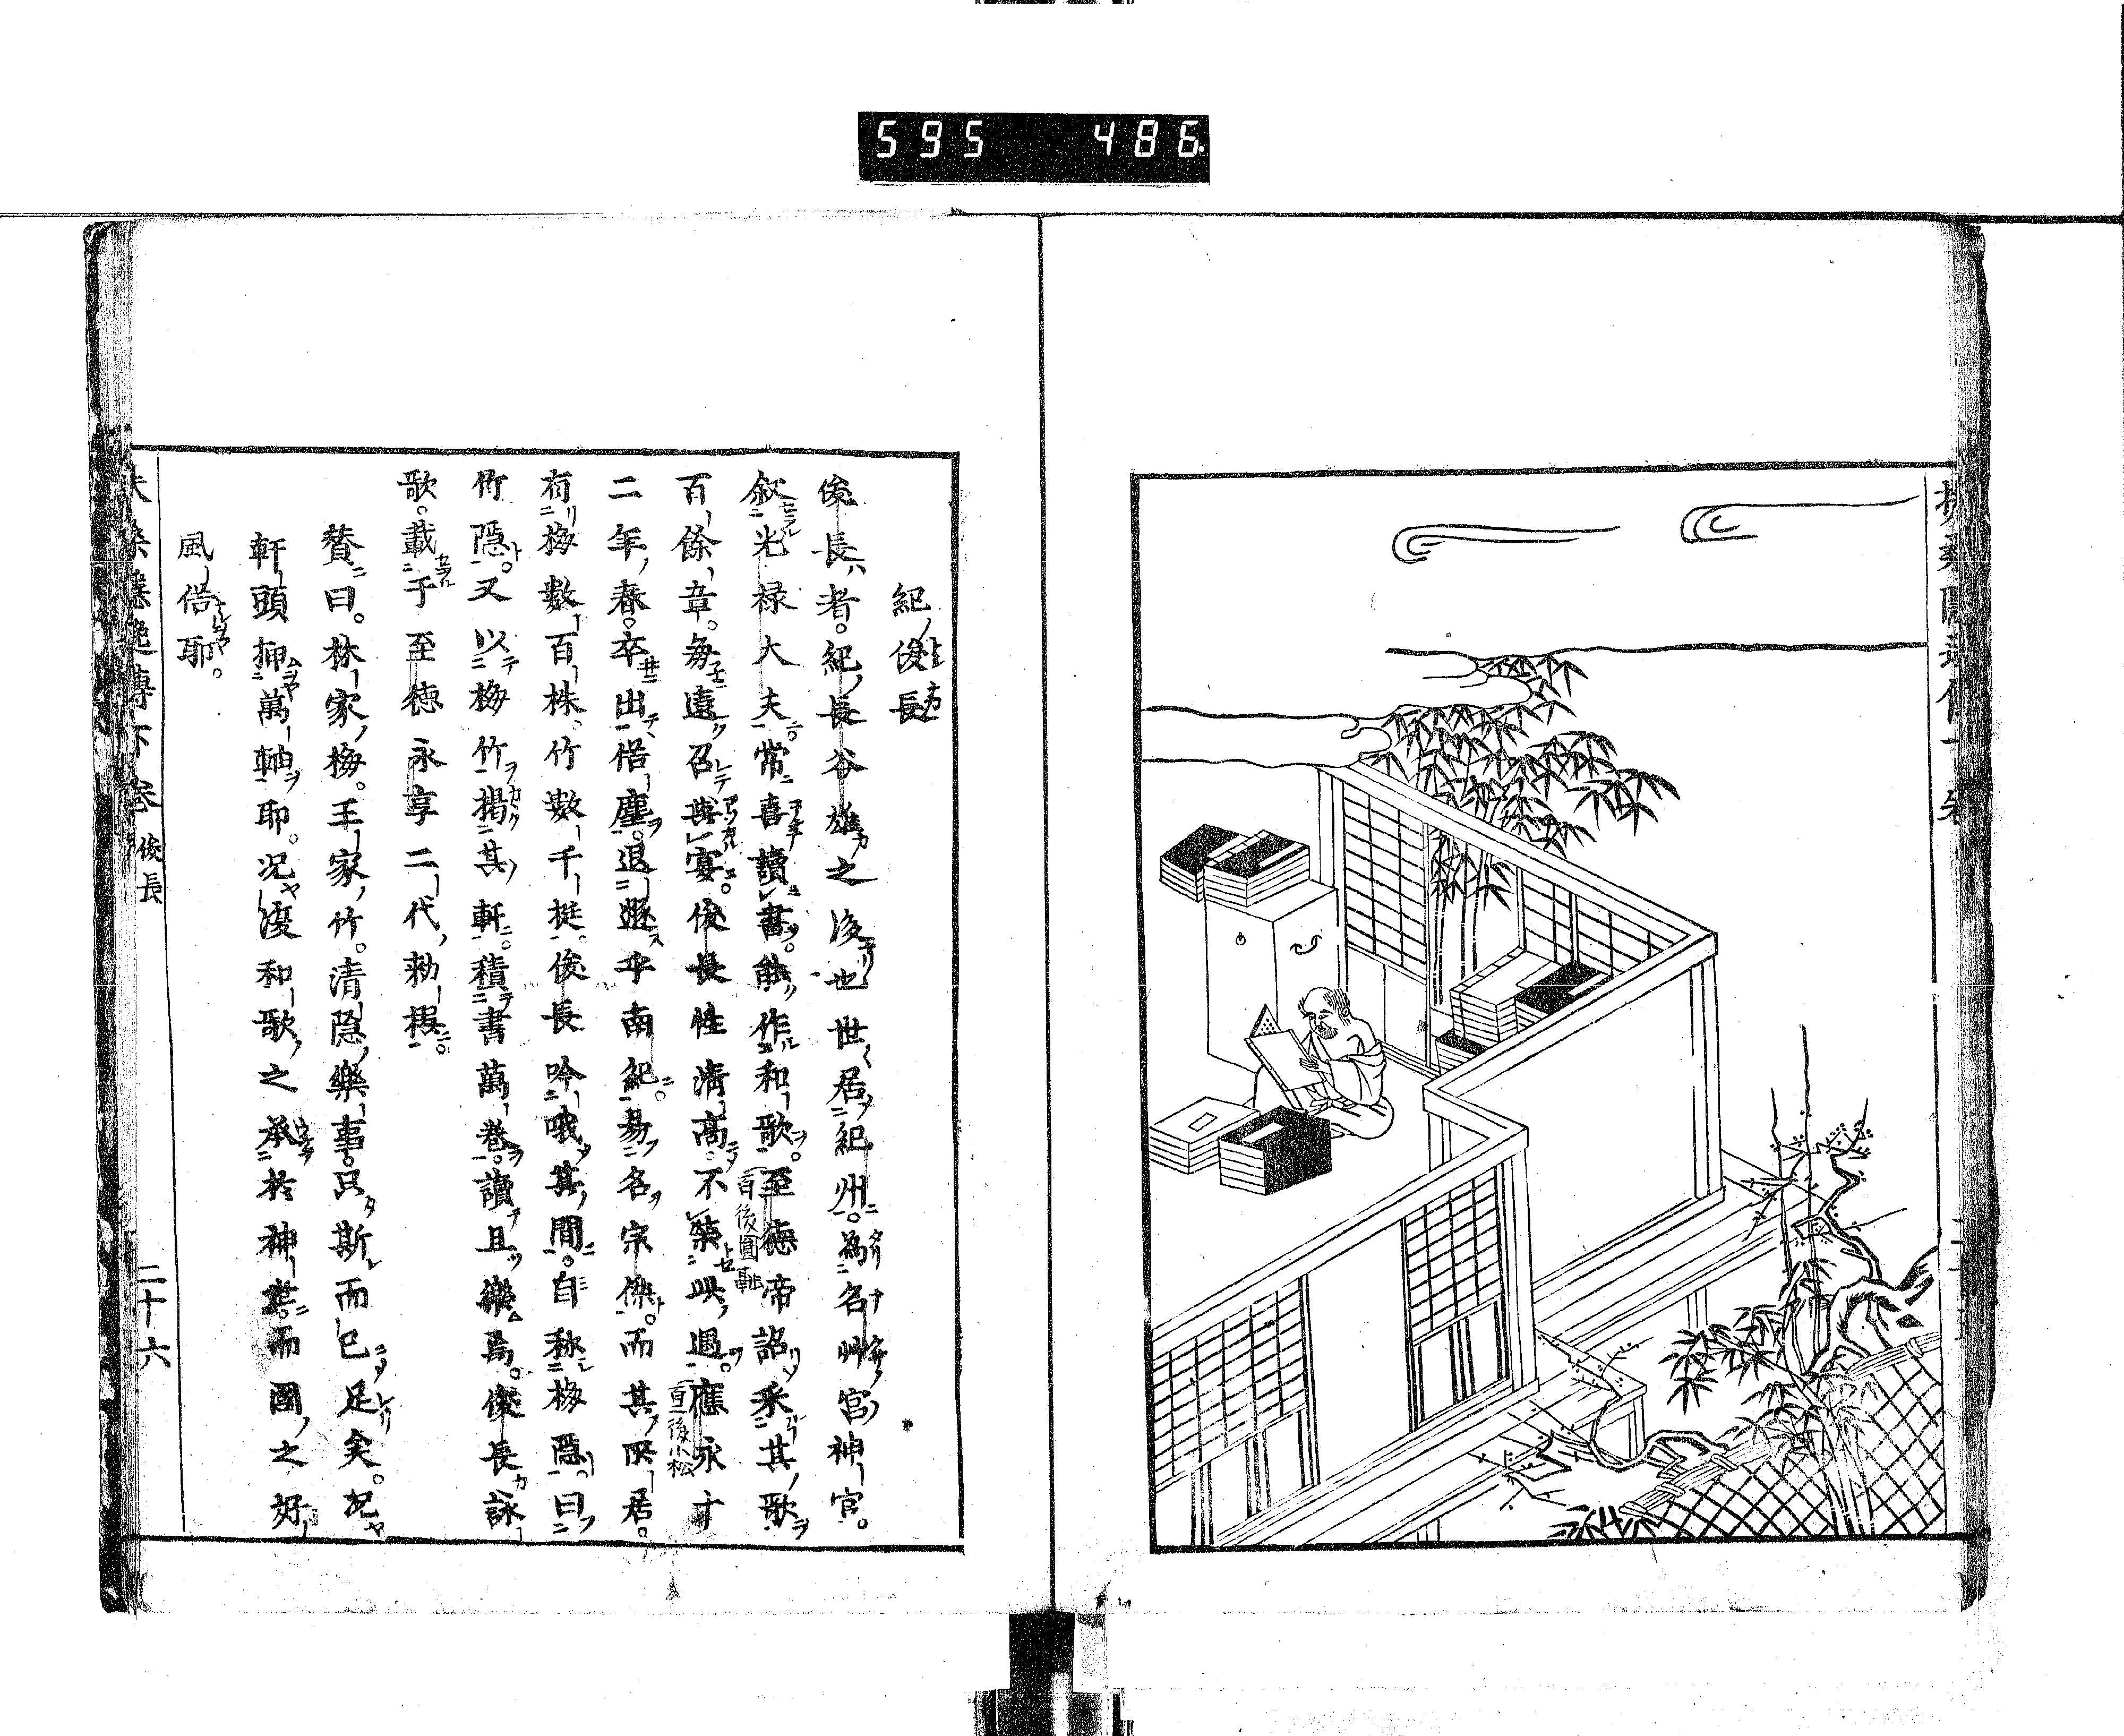 595 486
紀俊長
俊長者。紀長谷雄之後也世居紀州。為名艸宮神官。
叙光禄大夫。常喜讀書。能作和歌。至德帝詔采其歌
百後圓融
百餘章。毎遠召與宴。俊長性清高不榮此遇。應永十
百後小松
二年春。卒出俗塵。退遯乎南紀。易名宗傑。而其所居。
有梅數百株。竹數千挺。俊長吟哦其間。自称梅隠。曰
竹隠。又以梅竹掲其軒。積書萬巻。讀且樂焉。俊長詠
歌。載于至德永享二代勅撰。
賛曰。林家梅。王家竹。清隠樂事。只斯而已足矣。況
軒頭挿萬軸耶。况復和歌之承於神世。而國之好
風俗耶。
俊長
二十六